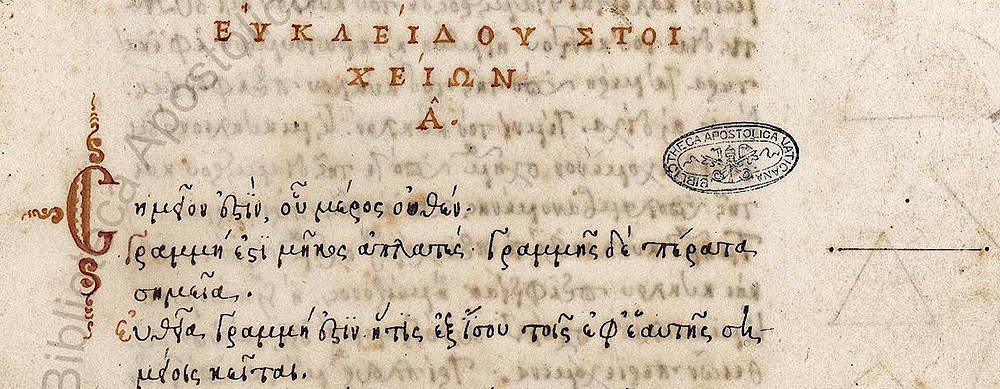 ΕΥ̓ΚΛΕΊΔΟΥ ΣΤΟΙ
ΧΕΊΩΝ
Α̂.
Σημεῖον ἐστὶν, οὗ μέρος οὐθέν.
Γραμμή ἐστι μῆκος ἀπλατές. Γραμμῆς δὲ πέρατα
σημεῖα.
εὐθεῖα γραμμή ἐστιν ἥτις ἐξ ἴσου τοῖς ἐφ' ἑαυτῆς ση-
μείοις κεῖται.
BIBLIOTHECA APOSTOLICA VATICANA
Biblioteca Apostol